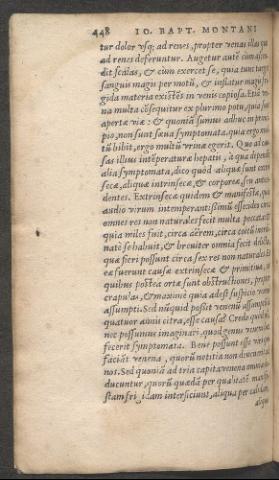 448 IO. BAPT. MONTANI
tur dolor vsq; ad renes, propter venas illas quæ
ad renes deferuntur. Augetur autē cum ascē-
dit scalas, & cum exercet se, quia tunc
sanguis magis per motū, & inflatur magis fri
gida materia existēs in venis copiosa. Etiā ve-
na multa cōsequitur ex plurimo potu, quia sunt
apertæ viæ: & quoniā sumus adhuc in princi-
pio, non sunt sæua symptomata. quia ergo mul
tū bibit, ergo multū vrinæ egerit. Quo ad cau-
sas illius intēperaturæ hepatis, à qua dependēt
alia symptomata, dico quòd aliquæ sunt extrin
secæ, aliquæ intrinsecæ, & corporeæ, seu antece
dentes. Extrinsecæ quidem & manifestæ, quia
audio virum intemperantissimū esse: ideo circa
omnes res non naturales fecit multa peccata:
quia miles fuit, circa aërem, circa coitū inordi
natè se habuit, & breuiter omnia fecit delicta
quæ fieri possunt circa sex res non naturales. Et
eæ fuerunt causæ extrinsecæ & primitiuæ, è
quibus postea ortæ sunt obstructiones, propter
crapulas, & maximè quia adest suspicio veneni
assumpti. Sed nūquid posset venenū assumptū
quatuor annis citra, esse causa? Credo quòd
nec possumus imaginari, quòd genus veneni
fecerit symptomata. Bene possunt esse
faciāt venena, quorū notitia non
nos. Sed quoniā ad tria capita venena omnia re
ducuntur, quorū quædā per qualitatē
interficiunt, aliqua per
aliqua